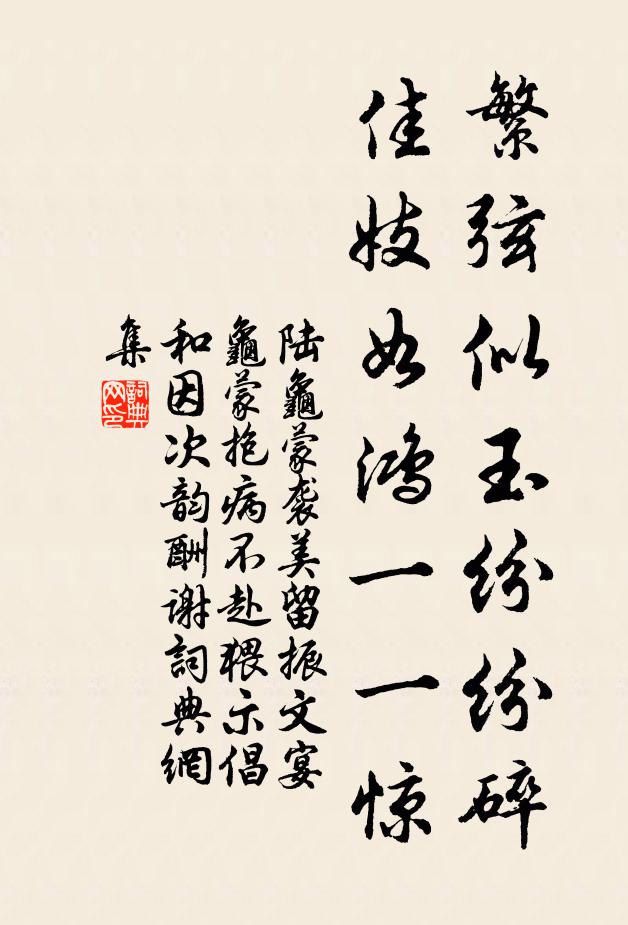 繁弦似玉纷纷碎
佳妓如鸿一一惊
陆龜蒙袭美留振文宴
龜蒙抱病不赴猥示倡
和因次韵酬谢詞典網
集
詞典网印